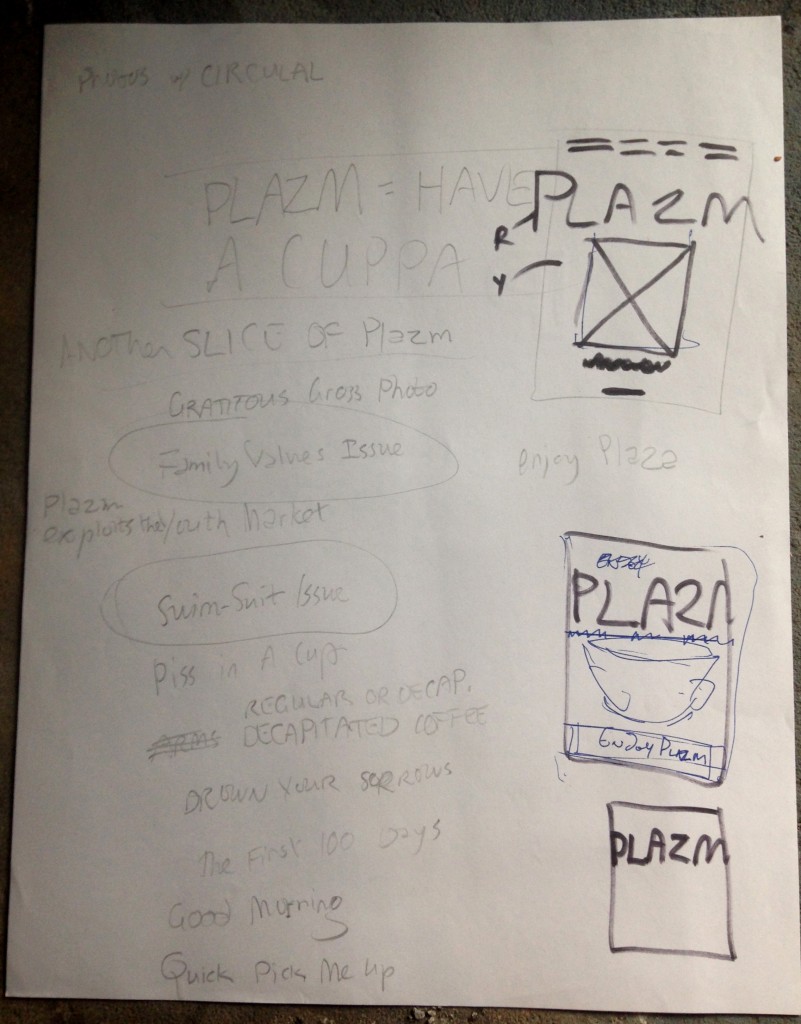 Photos w/ CIRCULAL
PLAZM = HAVE
A CUPPA
PLAZM
R
Y
ANOTHER SLICE OF Plazm
GRATITOUS Gross Photo
Family Values Issue
enjoy Plaza
Plazm
exploits the Youth Market
Swim-Suit Issue
ENJOY
PLAZM
Piss in A Cup
REGULAR OR DECAP.
DECAPITATED COFFEE
EnJoy PLAZM
DROWN YOUR SORROWS
The First 100 Days
PLAZM
Good Morning
Quick Pick Me Up